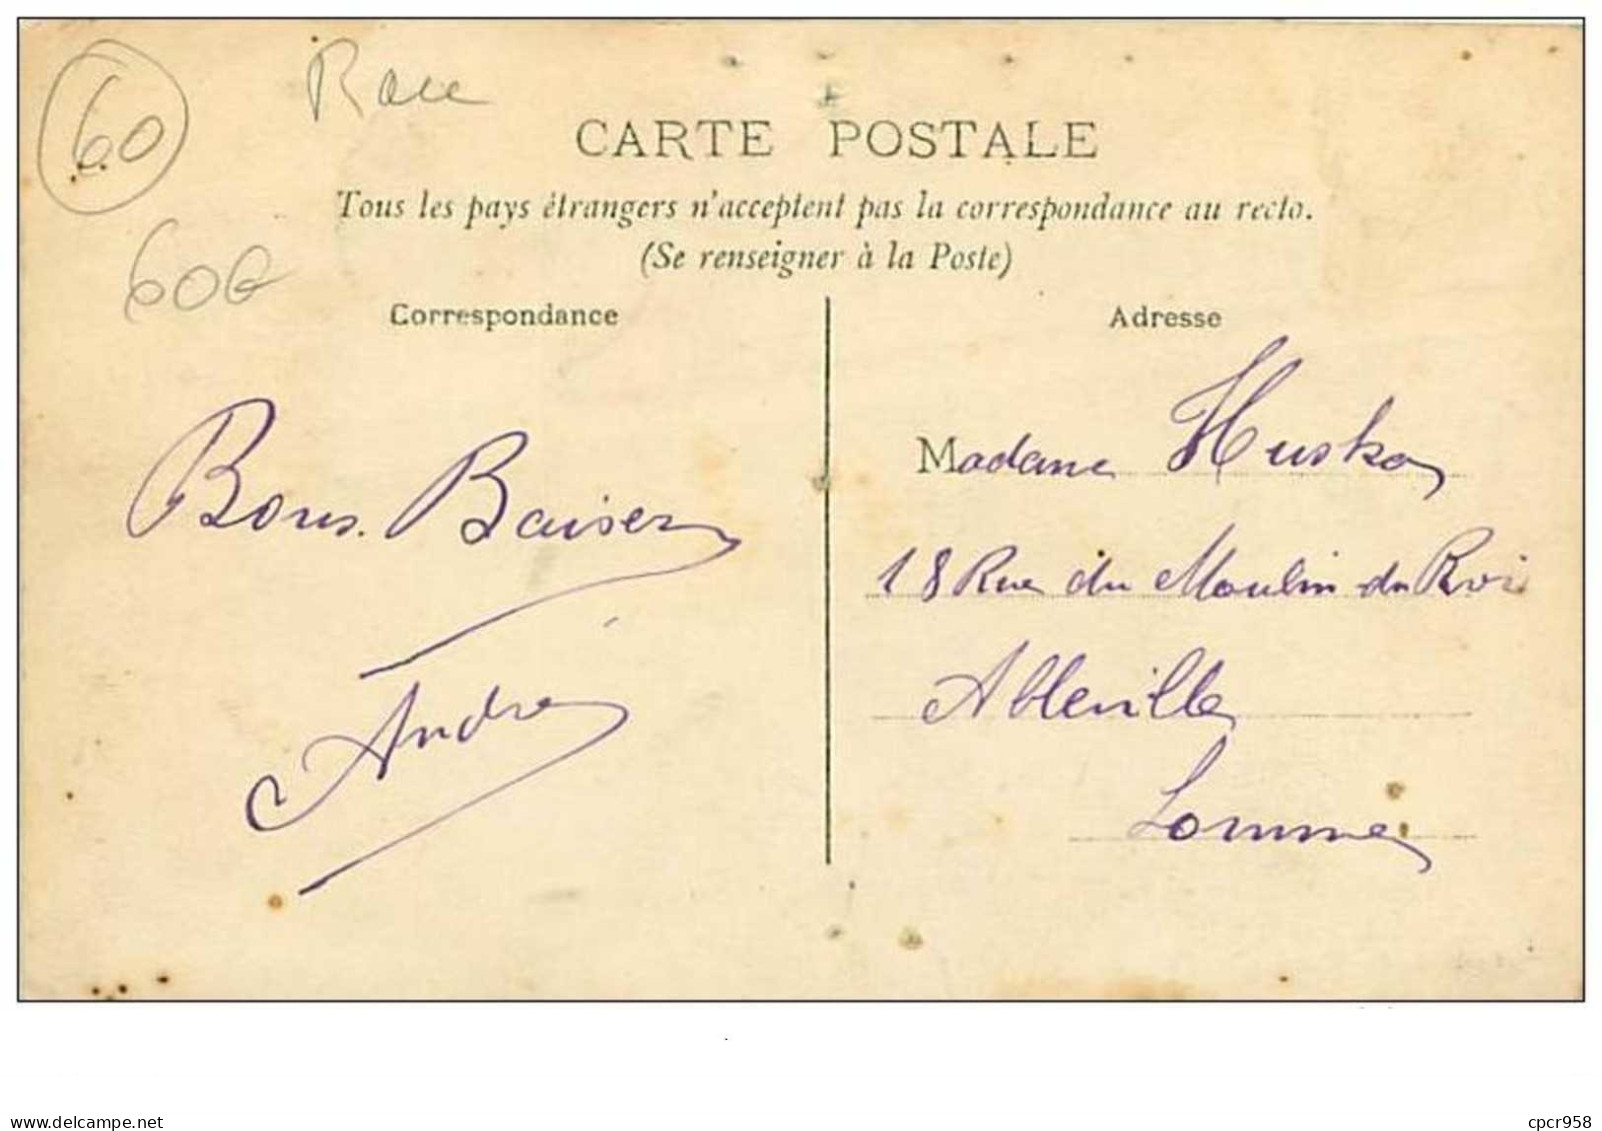 60
Rare
CARTE POSTALE
Tous les pays étrangers n'acceptent pas la correspondance au recto.
(Se renseigner à la Poste)
60€
Correspondance
Bons Baisers
André
Adresse
Madame
18 Rue du Moulin du Roi
Abbeville
Somme
delcampe.net
cpcr958